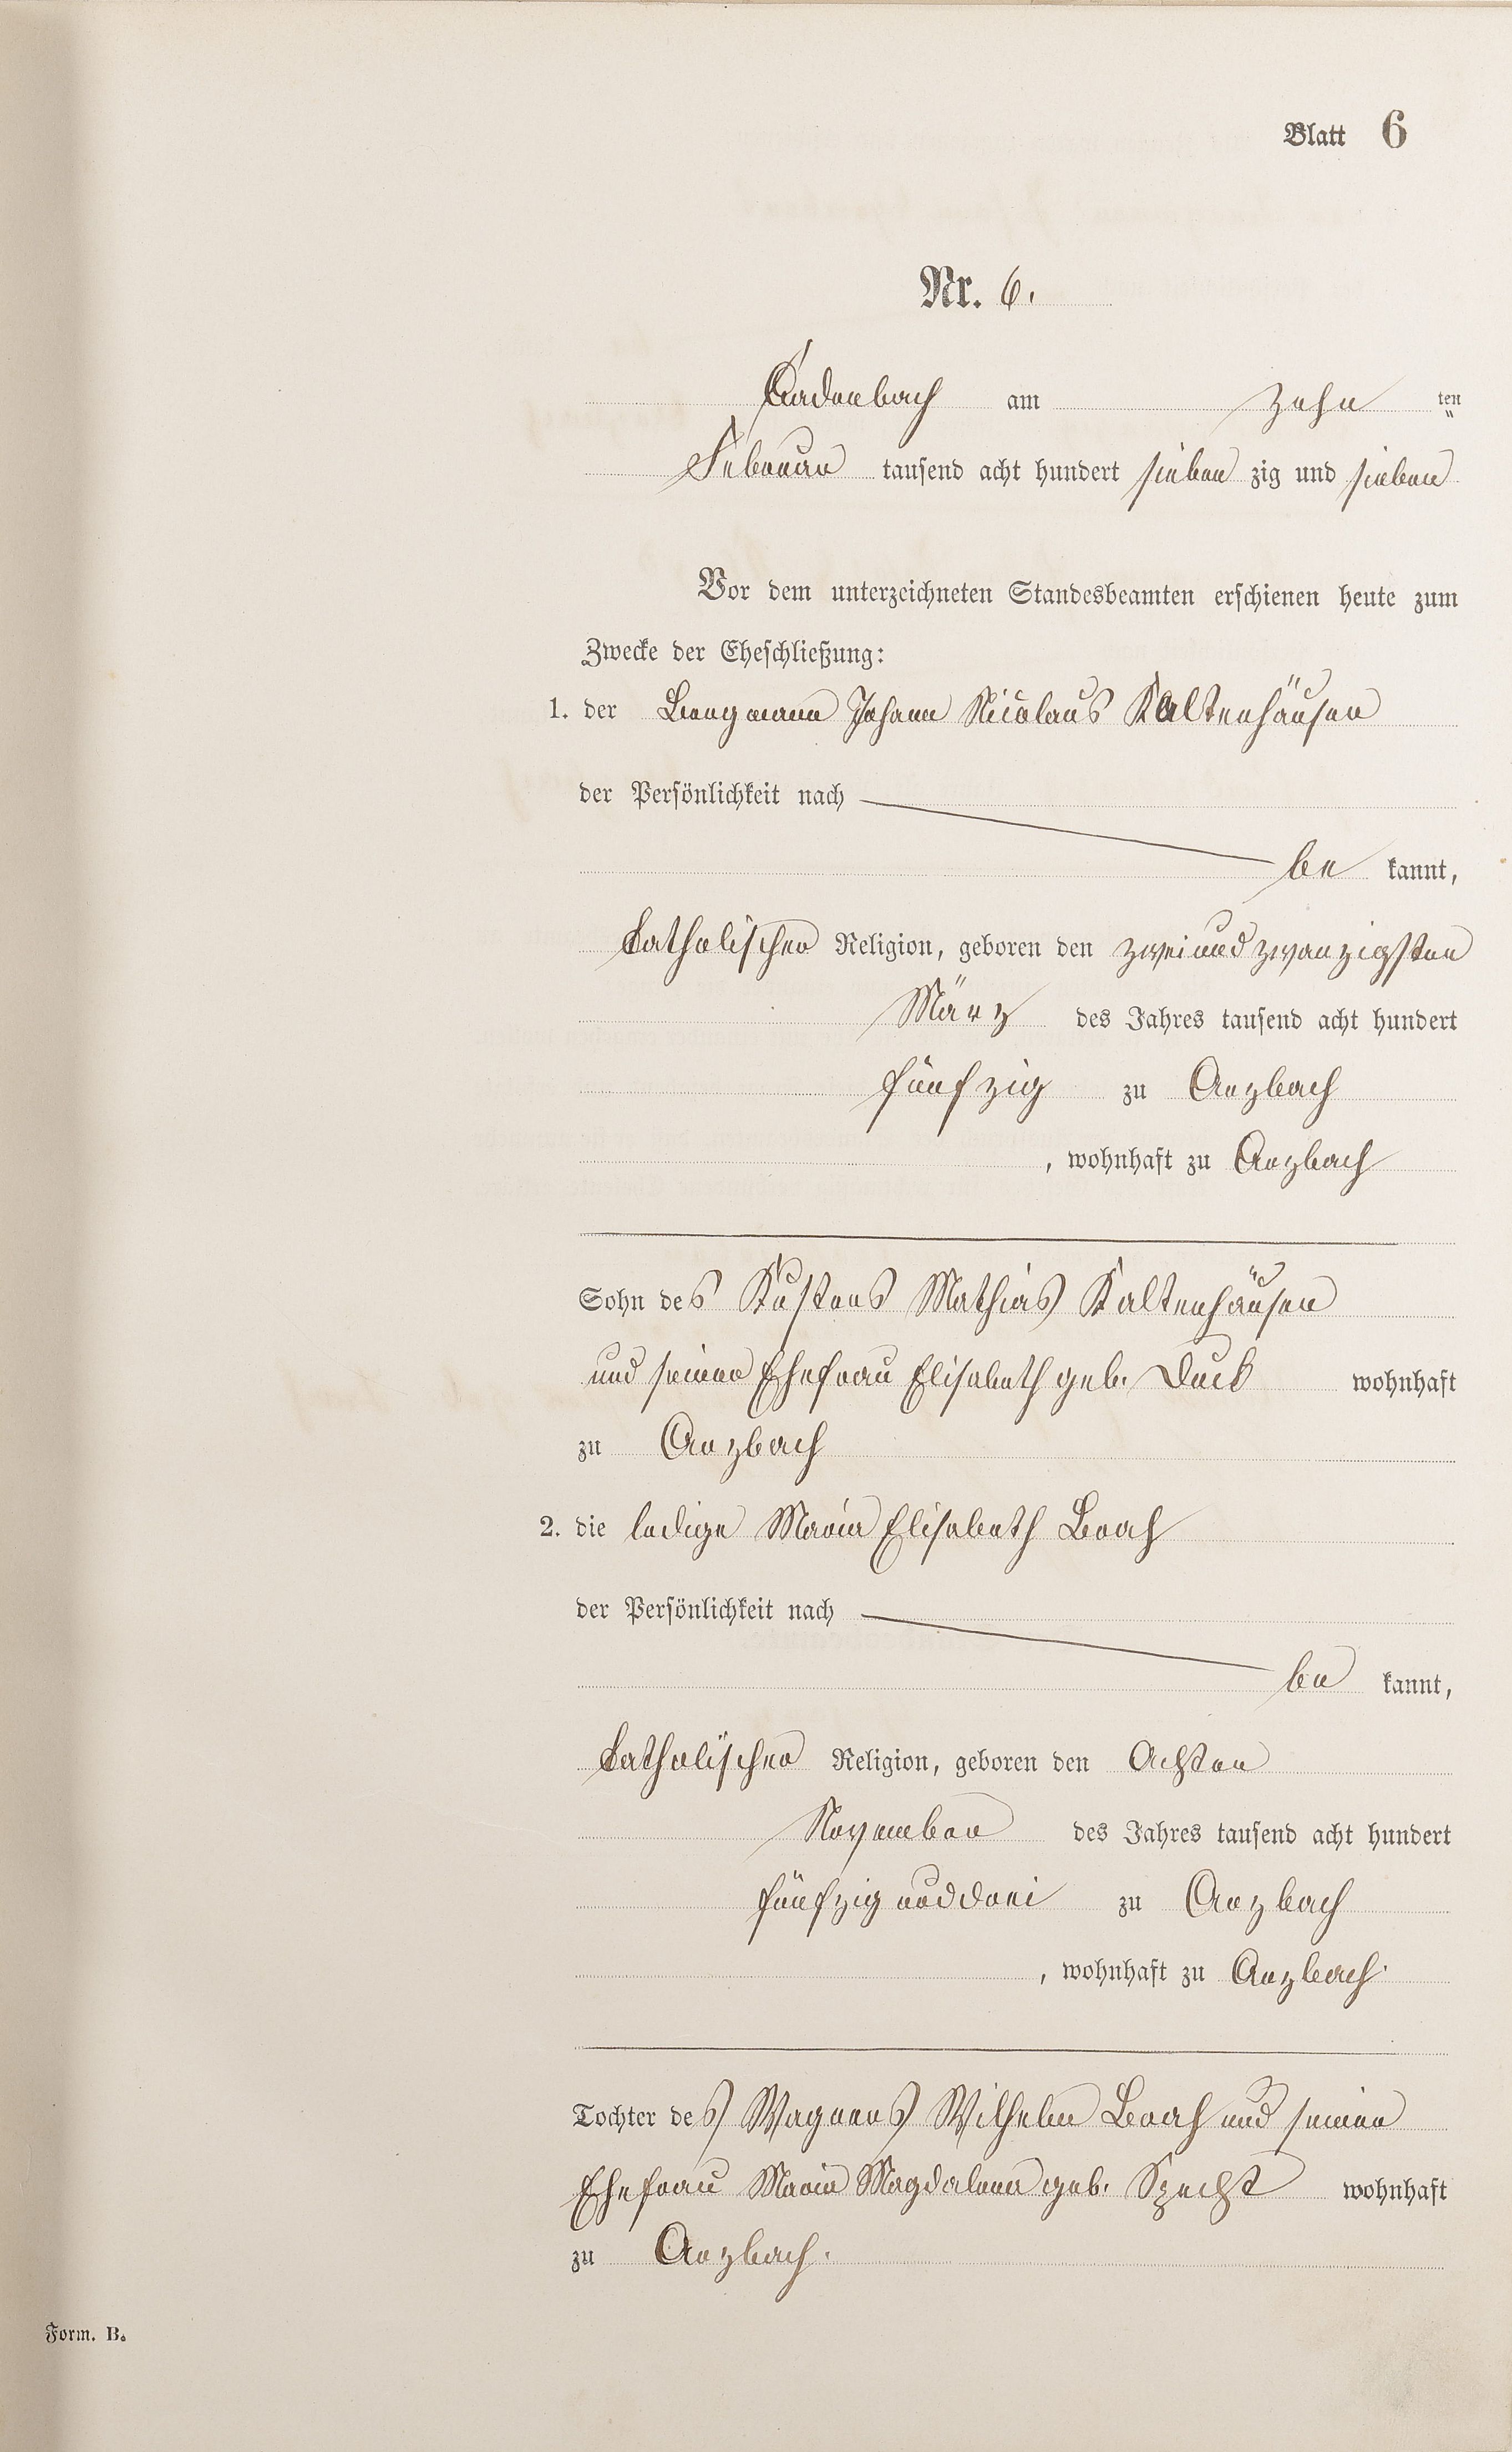 Blatt 6
Nr. 6.
Cadenbach am zehn ten
Februar tausend acht hundert sieben zig und sieben
Vor dem unterzeichneten Standesbeamten erschienen heute zum
Zwecke der Eheschließung:
1. der Bergmann Johann Nicolaus Kaltenhäuser
der Persönlichkeit nach
be kannt,
katholischer Religion, geboren den zweiundzwanzigsten
März des Jahres tausend acht hundert
fünfzig zu Arzbach
, wohnhaft zu Arzbach
Sohn des Küsters Mathias Kaltenhäuser
und seiner Ehefrau Elisabeth geb. Duck wohnhaft
zu Arzbach
2. die ledige Maria Elisabeth Bach
der Persönlichkeit nach
be kannt,
katholischer Religion, geboren den Achten
November des Jahres tausend acht hundert
fünfzig und drei zu Arzbach
, wohnhaft zu Arzbach.
Tochter des Wagners Wilhelm Bach und seiner
Ehefrau Maria Magdalena geb. Specht wohnhaft
zu Arzbach.
Form. B.